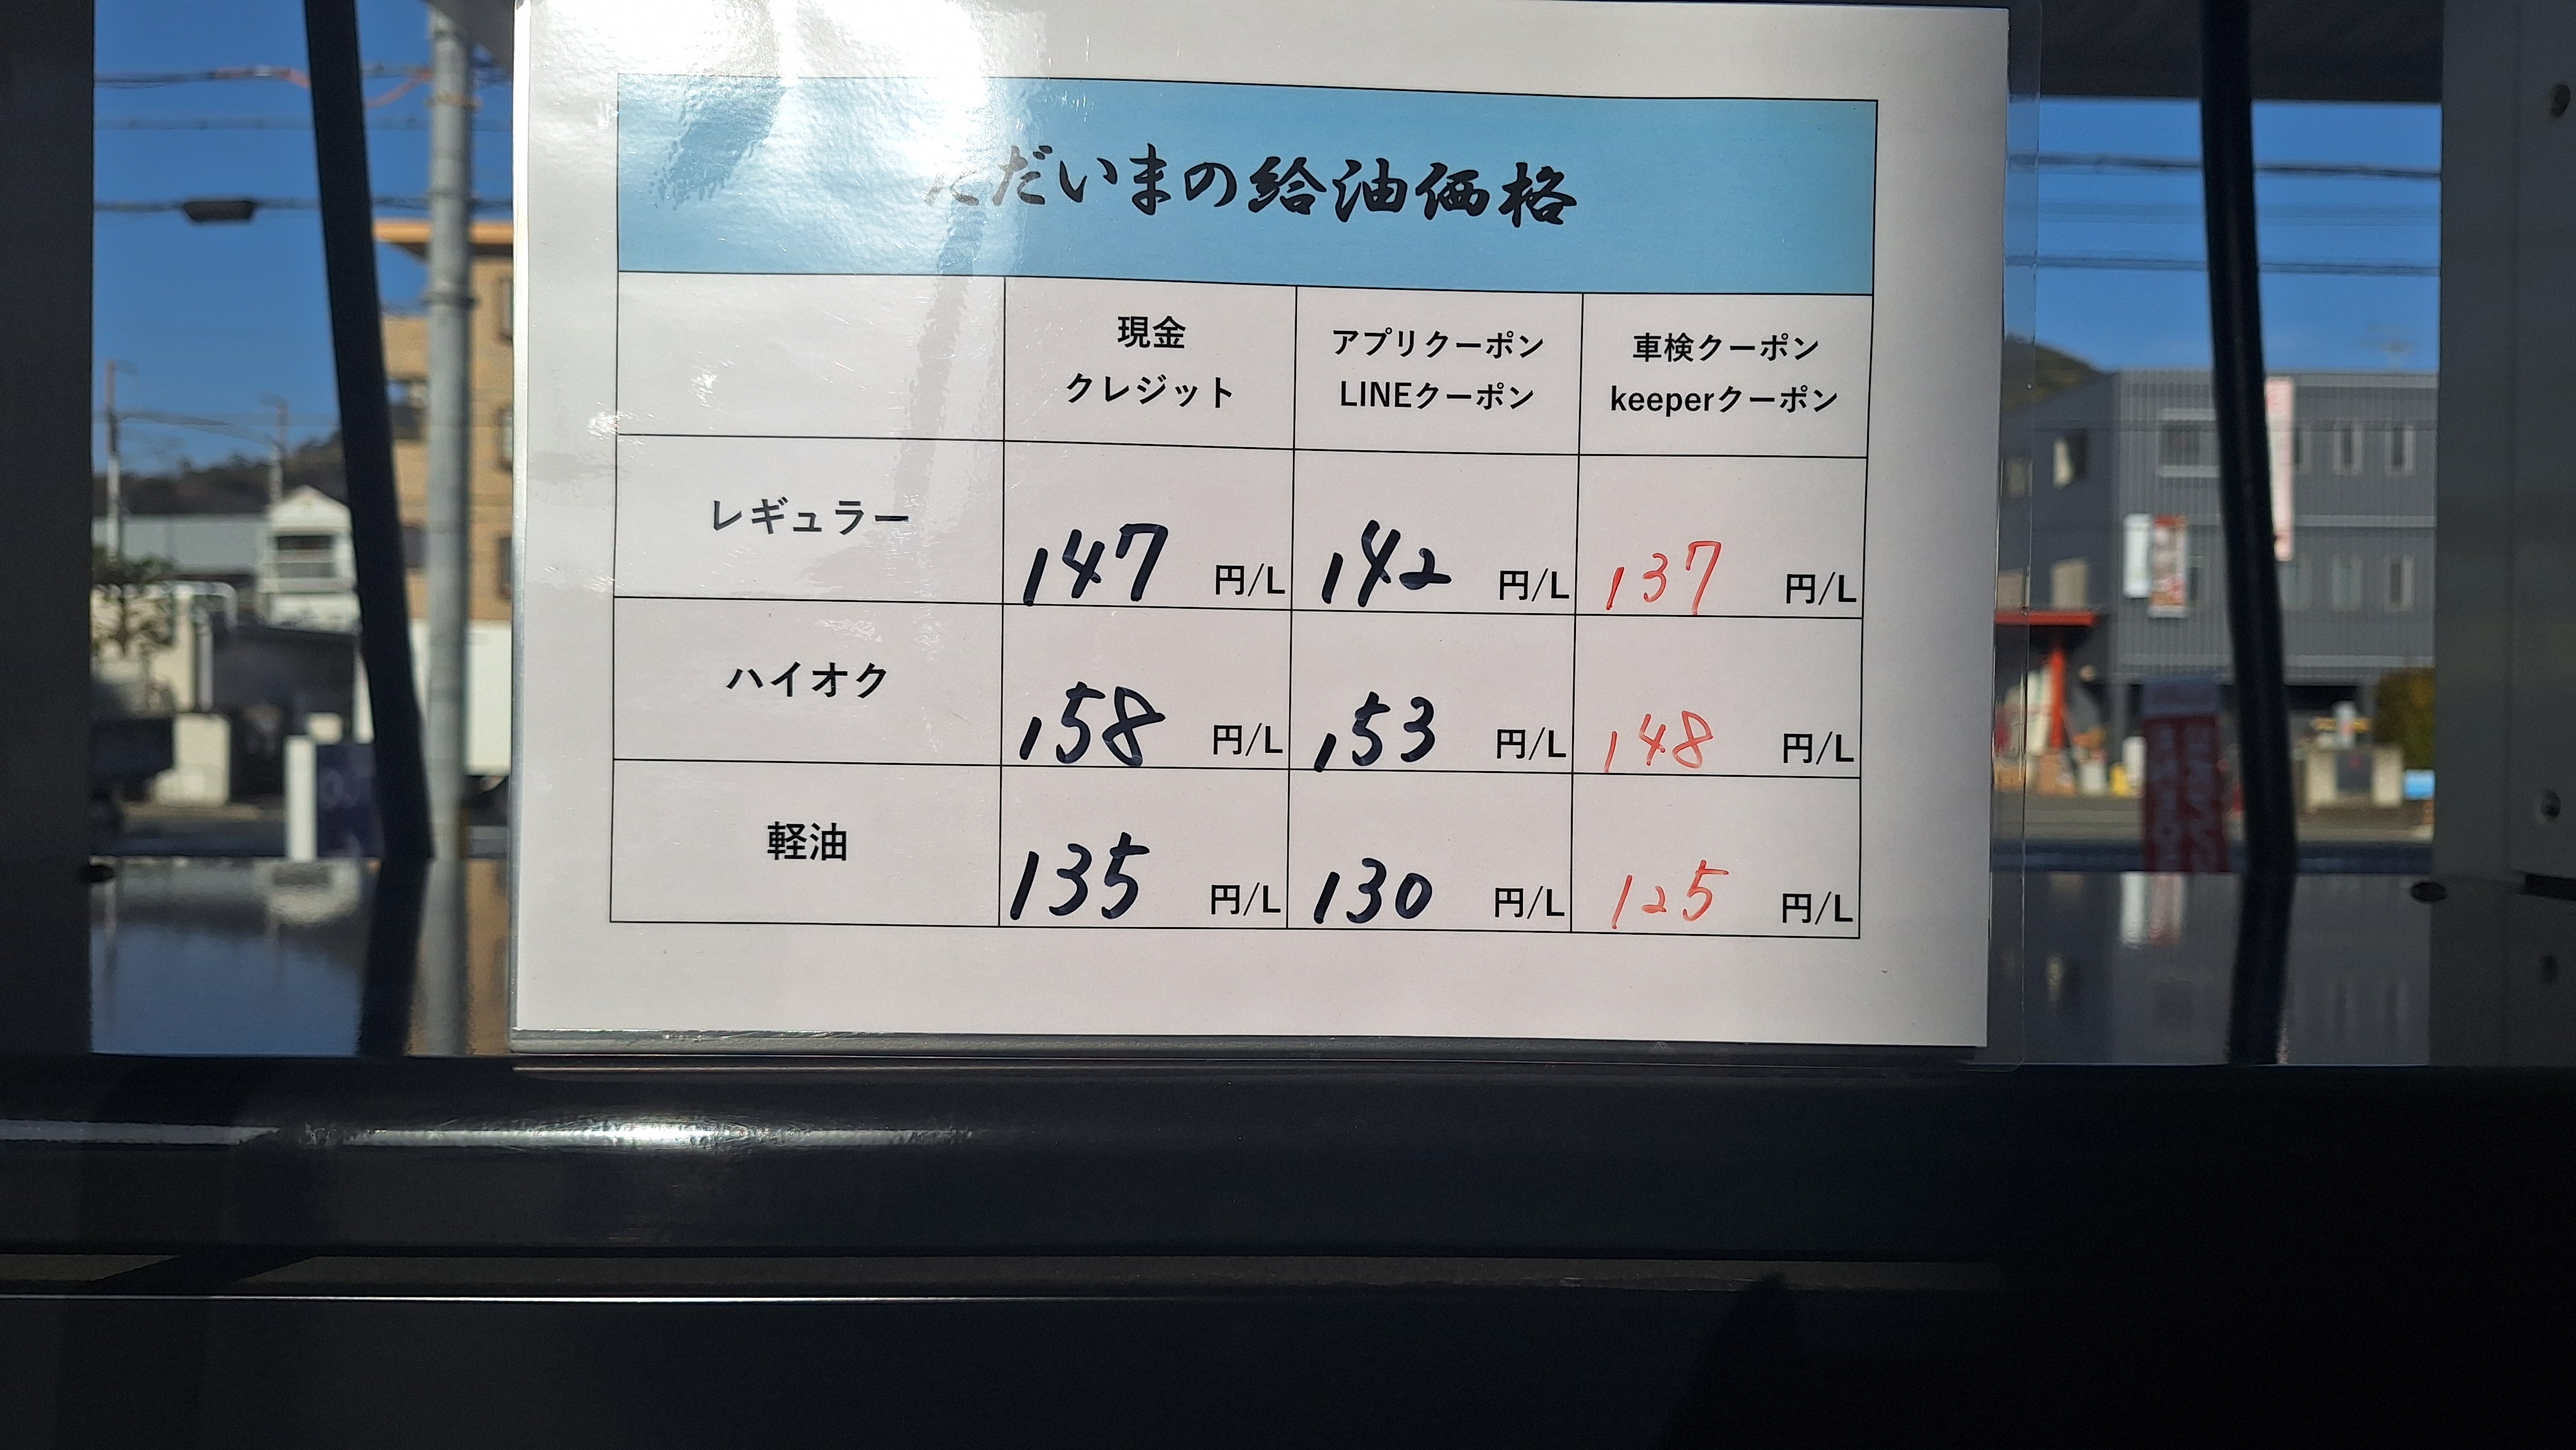 ただいまの給油価格
現金
クレジット
アプリクーポン
LINEクーポン
車検クーポン
keeperクーポン
レギュラー 147 円/L 142 円/L 137 円/L
ハイオク 158 円/L 153 円/L 148 円/L
軽油 135 円/L 130 円/L 125 円/L